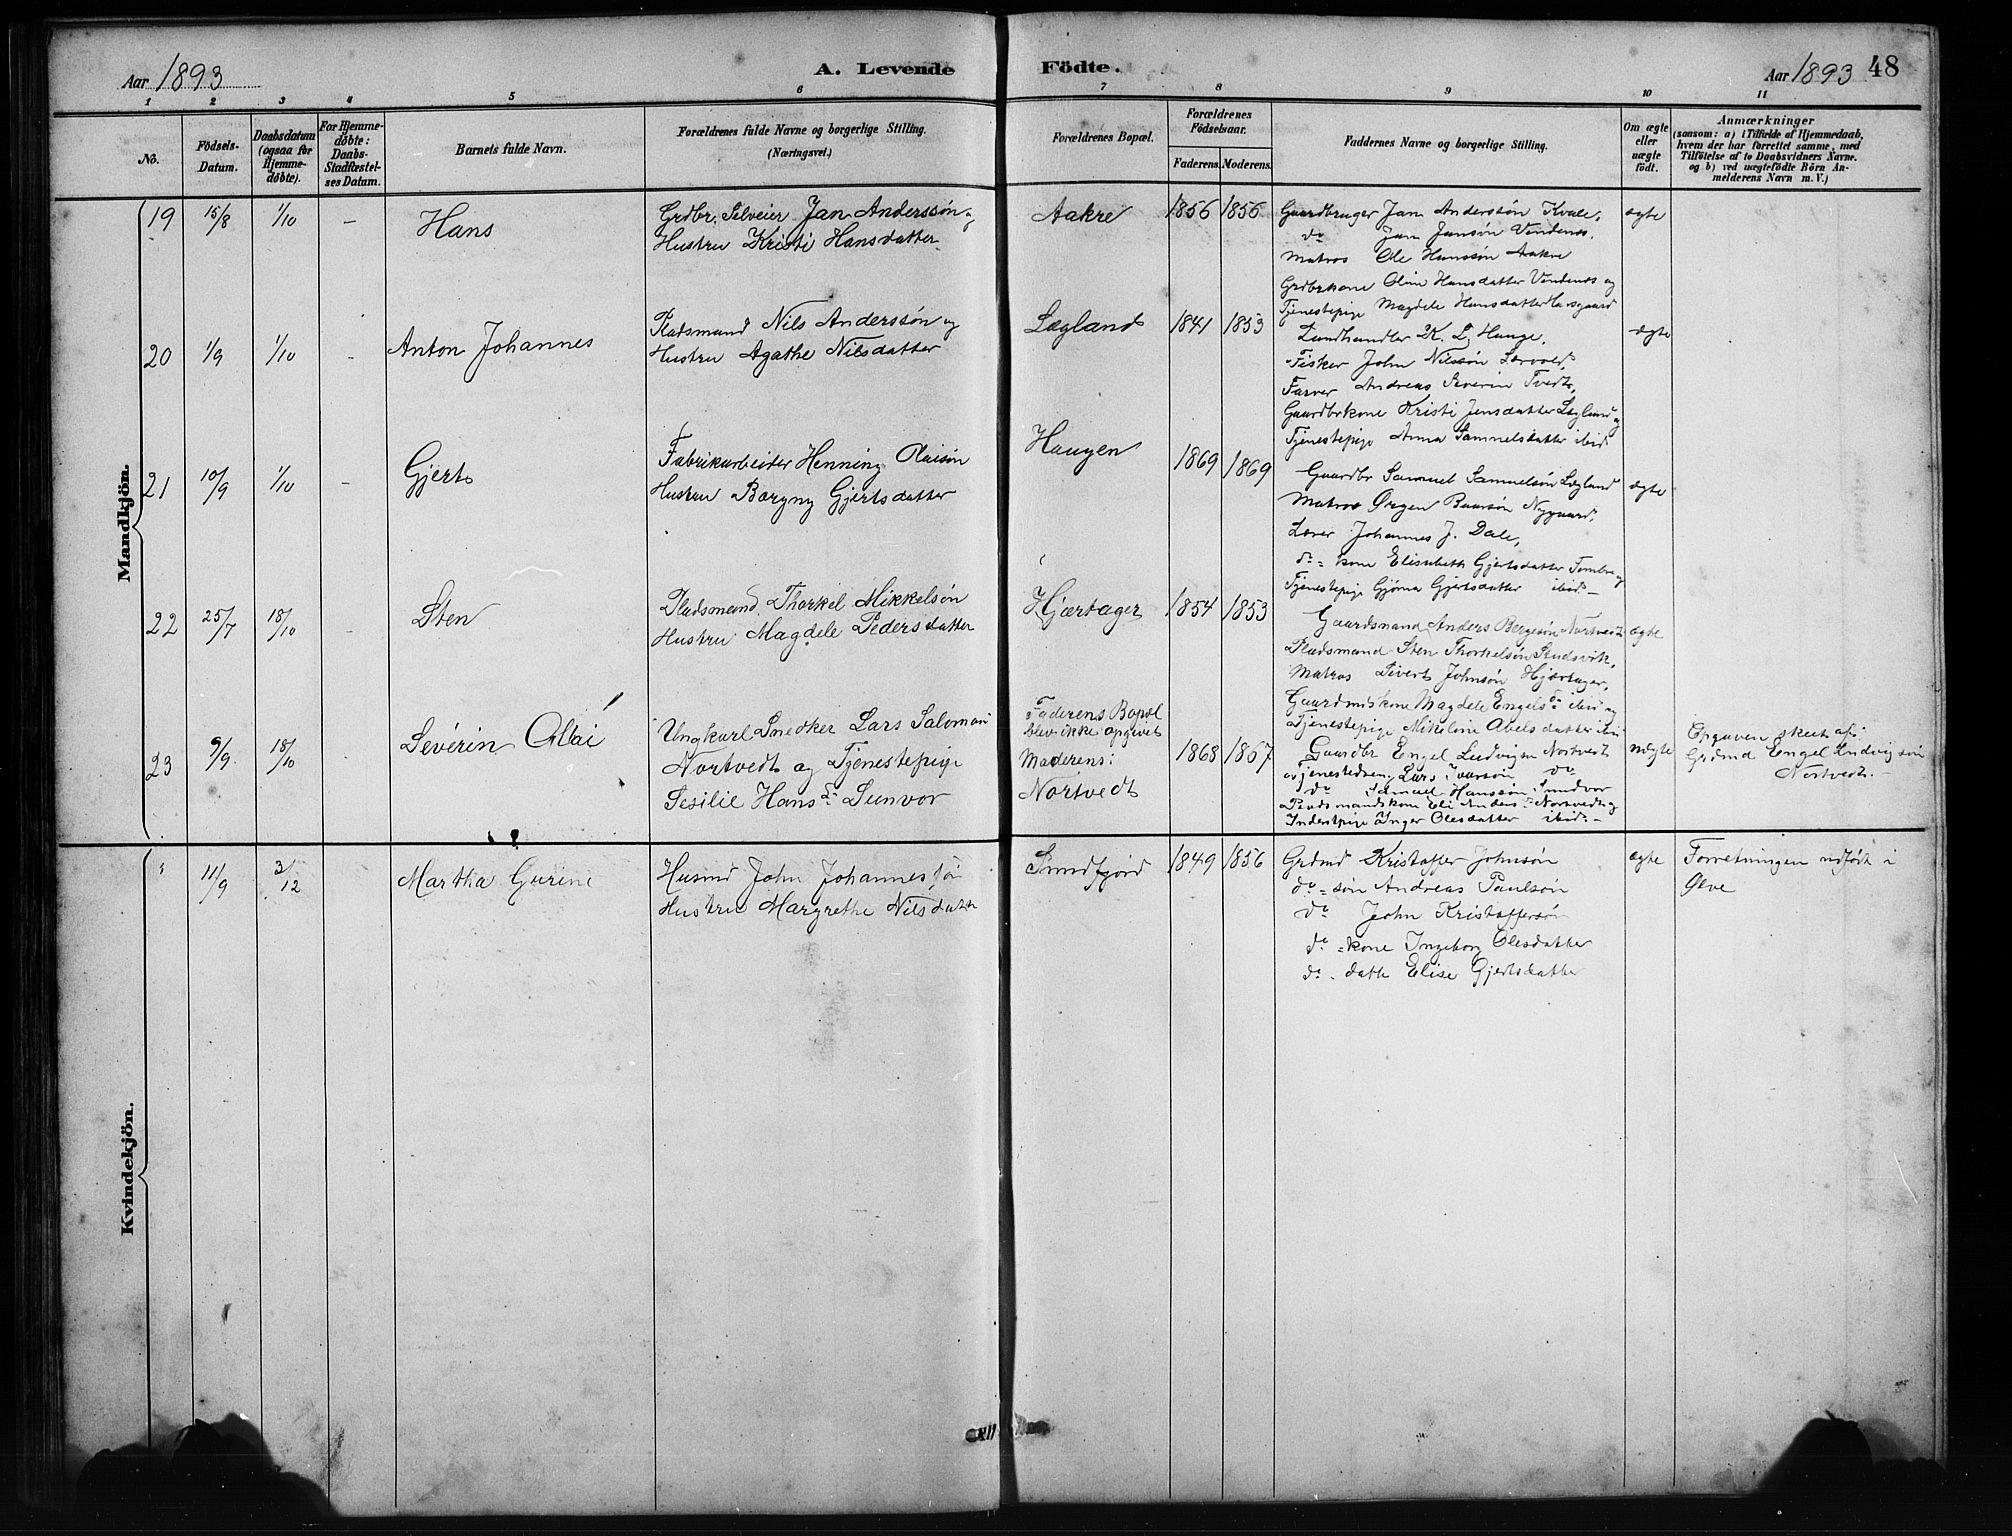 Aar 1893
A. Levende Födte.
Aar 1893 48
1 2 3 4 5 6 7 8 9 10 11
No.
Födsels-Datum.
Daabsdatum (ogsaa for Hjemme-döbte).
For Hjemme-döbte: Daabs-Stadfæstel-ses Datum.
Barnets fulde Navn.
Forældrenes fulde Navne og borgerlige Stilling.
(Næringsvei.)
Forældrenes Bopæl.
Forældrenes Födselsaar.
Faderens. Moderens.
Faddernes Navne og borgerlige Stilling.
Om ægte eller uægte födt.
Anmærkninger
(saasom: a) i Tilfælde af Hjemmedaab,
hvem der har forrettet samme, med
Tilföielse af to Daabsvidners Navne.
og b) ved uægtefödte Börn An-
melderens Navn m. V.)
Mandkjön.
19 15/8 1/10 – Hans
Grdbr. Jan Anderssön og
Hustru Kristi Hansdatter
Aakre 1856 1856
Gaardbruger Jan Anderssön Kvale,
do Jan Jansön Vendenes,
Matros Ole Hanssön Aakre
Grdbrkone Oline Hansdatter Vendenes og
Tjenestepige Magdele Hansdatter
ægte
20 1/9 1/10 - Anton Johannes
Pladsmand Nils Anderssön og
Hustru Agathe Nilsdatter
Lægland 1841 1853
Landhandler K. L. Hauge,
Fisker John Nilssön
Farver Andreas Severin Tvedt,
Gaardbrkone Kristi Jensdatter Lægland og
Tjenestepige Anna Samuelsdatter ibid
ægte
21 10/9 1/10 - Gjert
Fabrikarbeider Henning Olaisön
Hustru Borgny Gjertsdatter
Haugen 1869 1869
Gaardbr Samuel Samuelsön Lægland
Matros Ørgen Baarsön Nygaard,
Johannes J. Dale,
do = kone Elisabeth Gjertsdatter og
Tjenestepige Gjertsdatter ibid –
ægte
22 25/7 18/10 - Sten
Pladsmand Thorkel Mikkelsön
Hustru Magdele Pedersdatter
Hjartager 1854 1853
Gaardmand Anders Bergesön Nortvedt
Pladsmand Sten Thorkelsön
Matros Sivert Johnsön Hjærtager,
Gaardmdskone Magdele Engelsd ibid og
Tjenestepige Nikoline Abelsdatter ibid
ægte
23 9/9 18/10 Severin Olai
Ungkarl Snedker Lars Salomon
Nortvedt og Tjenestepige
Sesilie Hansdr Sunvor
Faderens Bopæl
blev ikke opgivet
Moderens:
Nortvedt
1868 1867
Gaardbr Engel Ludvigsen Nortvedt
Tjenestedreng Lars Ivarsön do
do Samuel Hanssön Sundvor
Pladsmandskone Eli Andersdr Nortvedt og
Inderstpige Inger Olesdatter ibid. –
uægte
Opgaven skeet af:
Grdmd Engel Ludvigsön
Nortvedt. –
Kvindekjön.
11/9 3/12 Martha Gurine
Husmd John Johannessön
Hustru Margrethe Nilsdatte
Sundfjord 1849 1856
Grdmd Kristoffer Johnsön
do = sön Andreas Paulsön
do John Kristoffersön
do = kone Ingeborg Olesdatter
do - datte Elise Gjertsdatter
ægte
Forretningen udfört i
Ølve